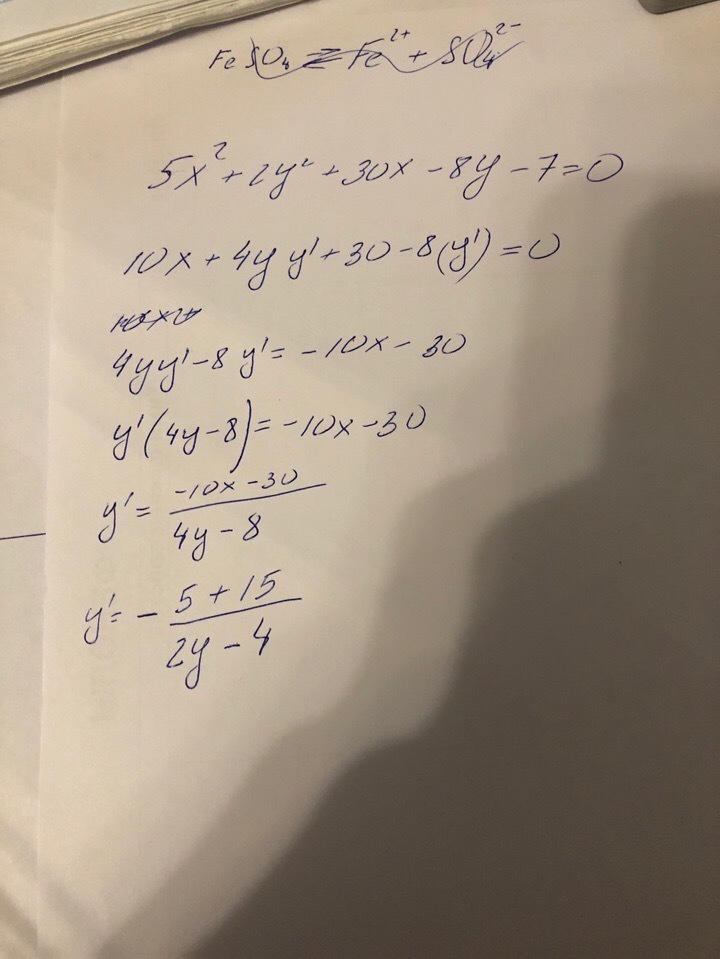 FeSO₄ ⇄ Fe²⁺ + SO₄²⁻
5x² + 2y² + 30x - 8y - 7 = 0
10x + 4y y' + 30 - 8(y') = 0
4yy' - 8y' = -10x - 30
y'(4y - 8) = -10x - 30
y' = (-10x - 30)/(4y - 8)
y' = - (5 + 15)/(2y - 4)